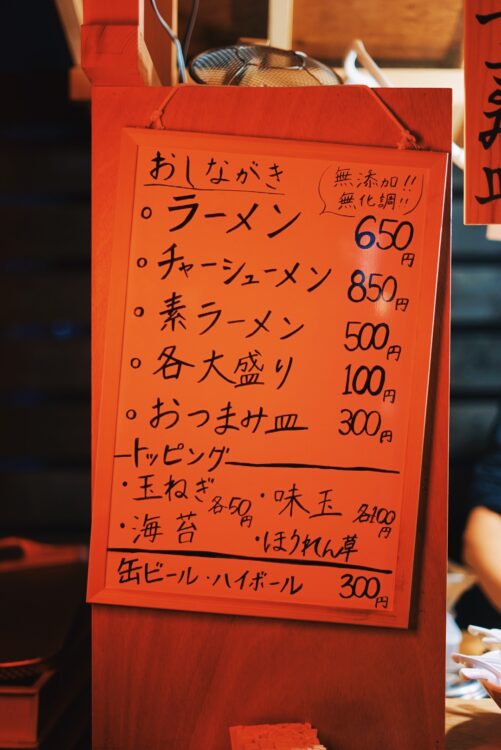 おしながき
無添加!!
無化調!!
○ ラーメン 650円
○ チャーシューメン 850円
○ 素ラーメン 500円
○ 各大盛り 100円
○ おつまみ皿 300円
トッピング
・玉ねぎ ・海苔 各50円
・味玉 ・ほうれん草 各100円
缶ビール・ハイボール 300円